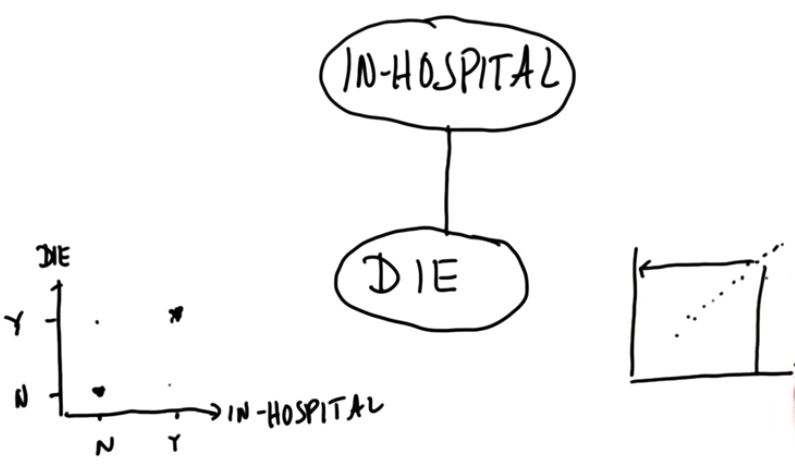 IN-HOSPITAL
DIE
DIE
Y
N
IN-HOSPITAL
N Y